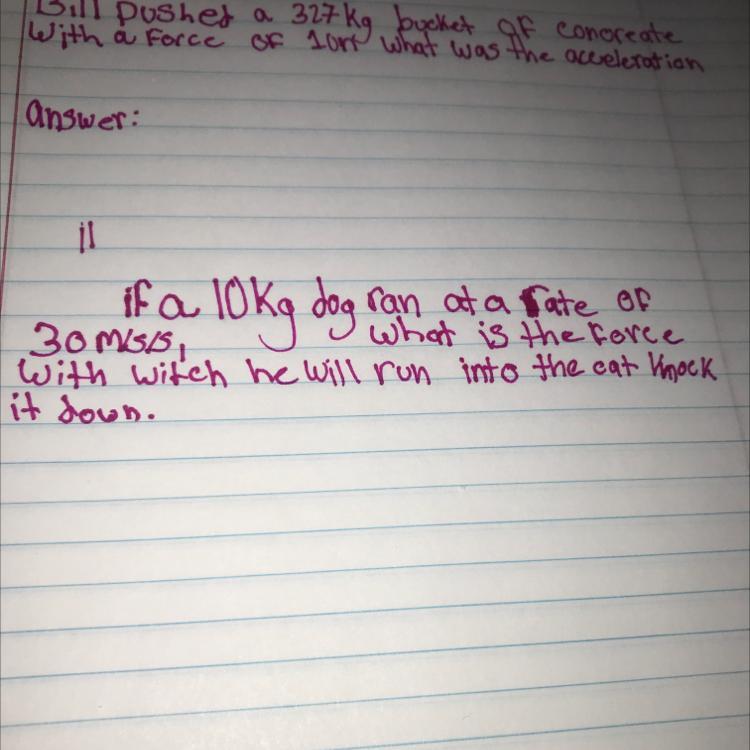 Bill pushes a 327kg bucket of concreate
With a Force of 10n what was the acceleration
answer:
11
if a 10kg dog ran at a rate of
30 m/s/s, what is the Force
with witch he will run into the cat knock
it down.